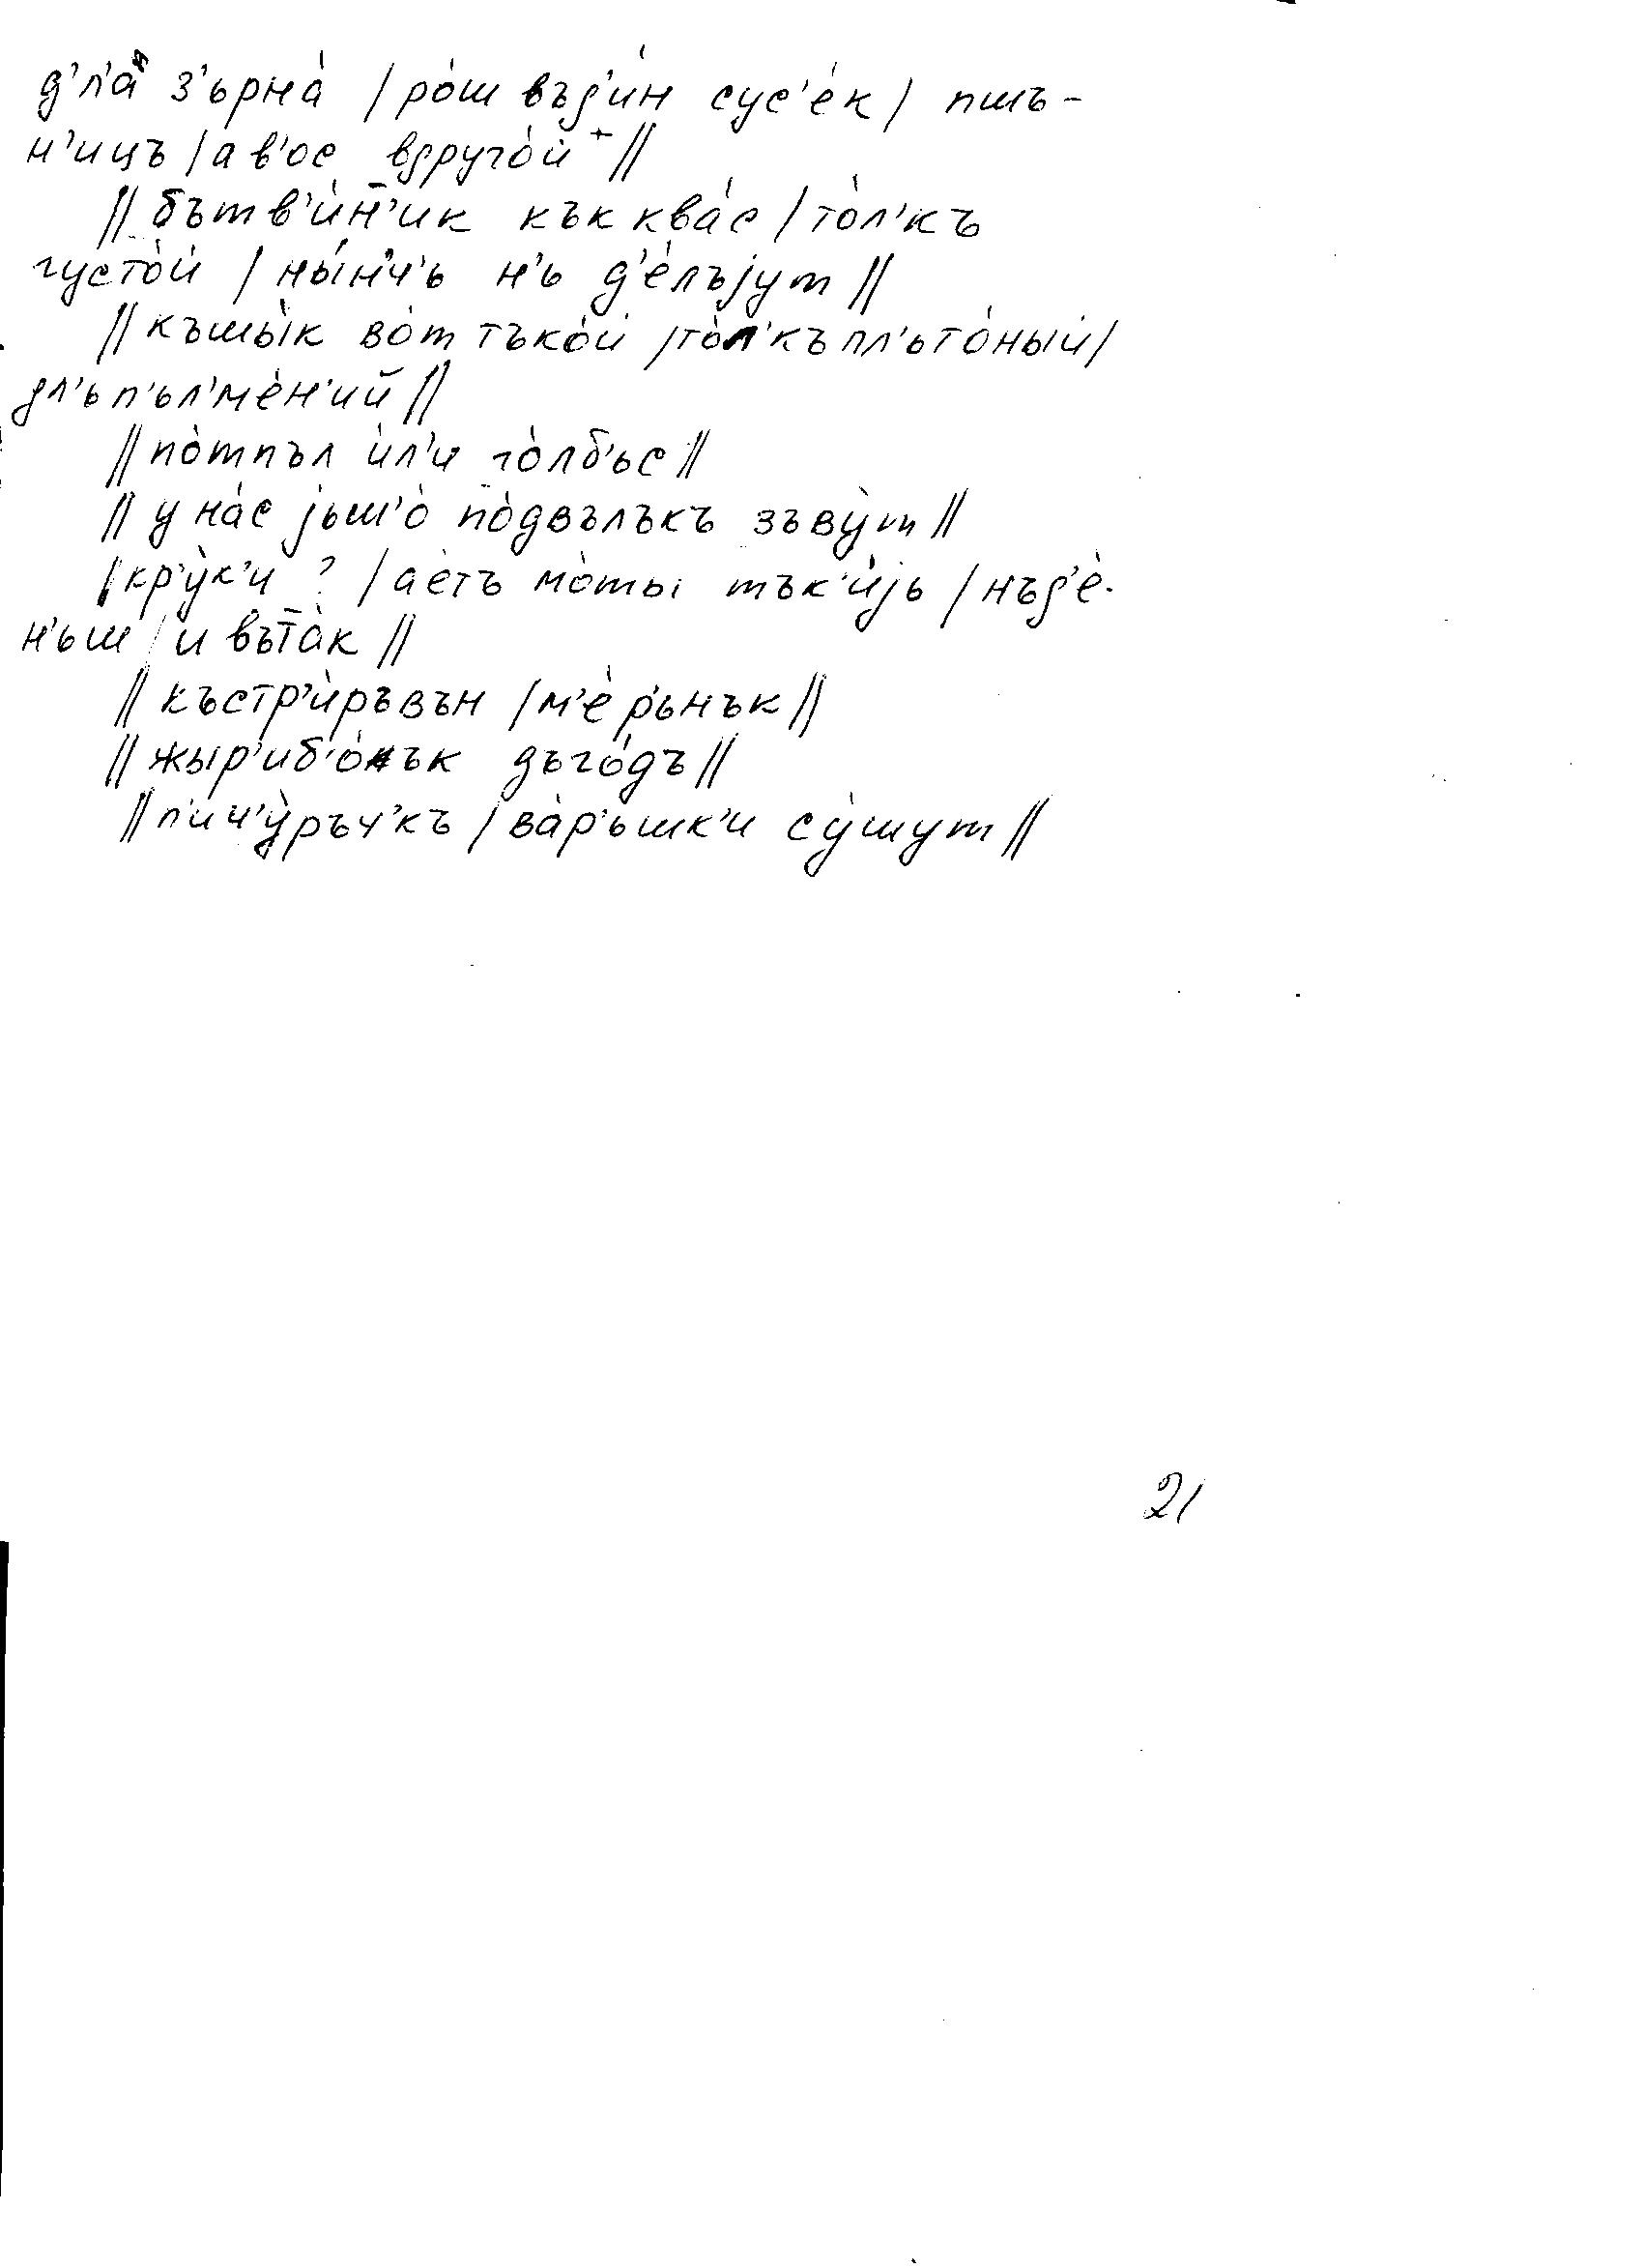 д'л'а з'ьрна́ / ро́ш въд'и́н сус'е́к / пшъ-
н'ицъ / а в'ос вдруго́й //
// бътв'и́н̄'ик кък ква́с / то́л'къ
густо́й / ны́н'ч'ь н'ь д'е́лъjут //
// къшы́к во́т тъко́й / то́л'къ пл'ьто́ный /
дл'ь п'ьл'ме́н'ий //
// по́тпъл и́л'и го́лб'ьс //
// у на́с jьш'о́ по́двълъкъ зъву́т //
/ кр'у́к'и ? / а е́тъ мо́ты тък'и́jь / нъд'е́-
н'ьш / и вът̄а́к //
// къстр'и́ръвън / м'е́р'ьнък //
// жыр'иб'о́нък дъго́дъ //
// п'ич'у́ръч'къ / ва́р'ьшк'и су́шут //
21